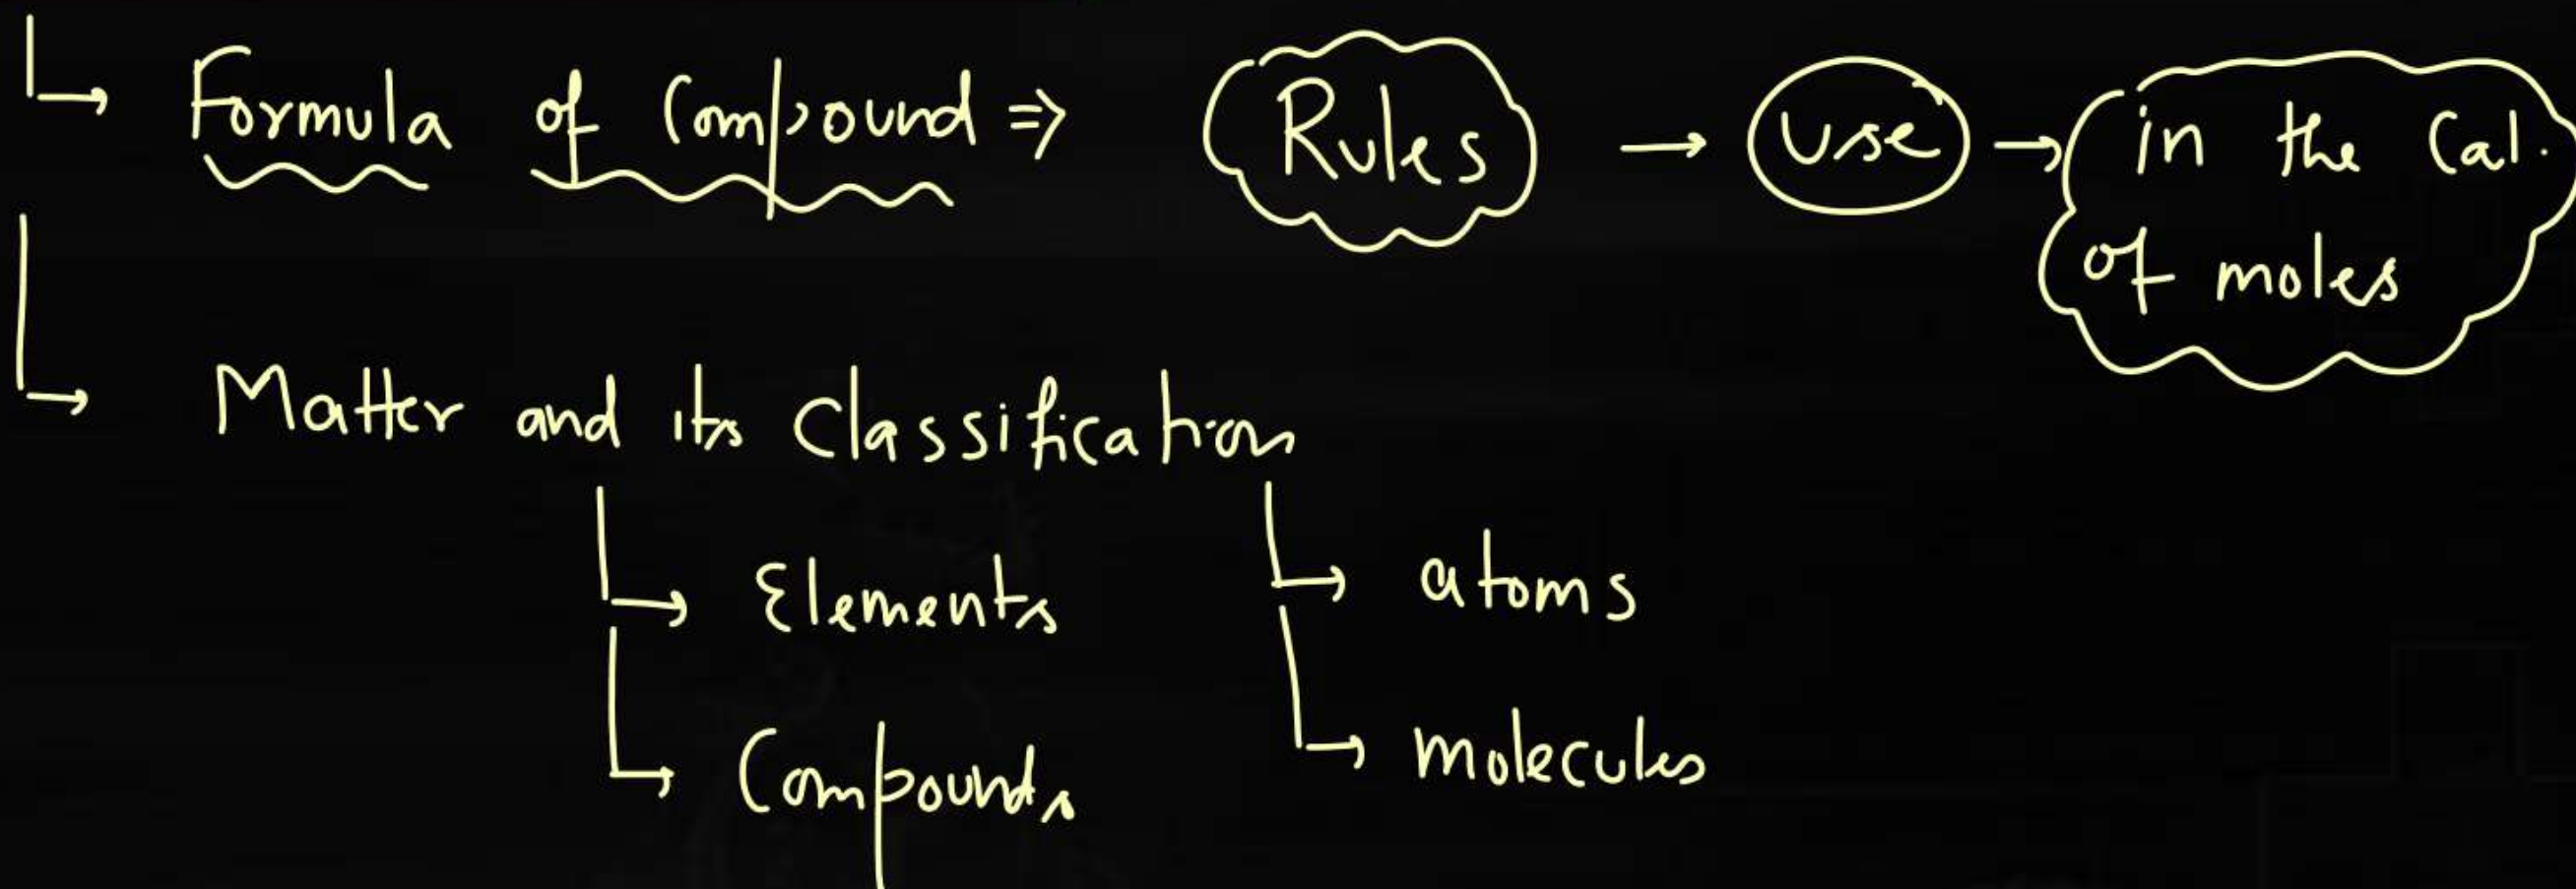 ↳ Formula of Compound ⇒ Rules → Use → in the Cal.
of moles
↳ Matter and its Classification
↳ Elements ↳ atoms
↳ Compounds ↳ molecules